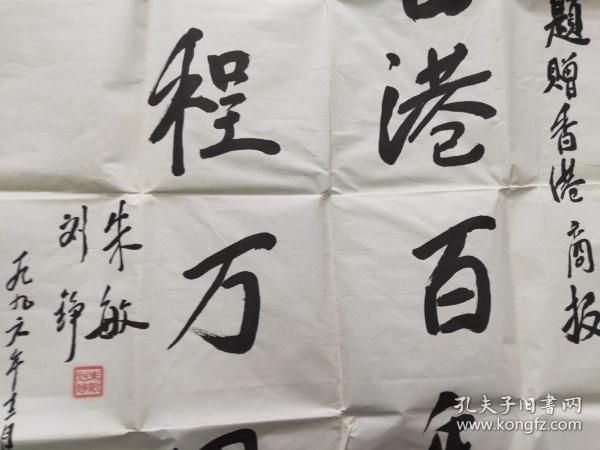 題贈香港商报
港百年
程万
朱敏
刘铮
一九九六年十二月
孔夫子旧书网
www.kongfz.com